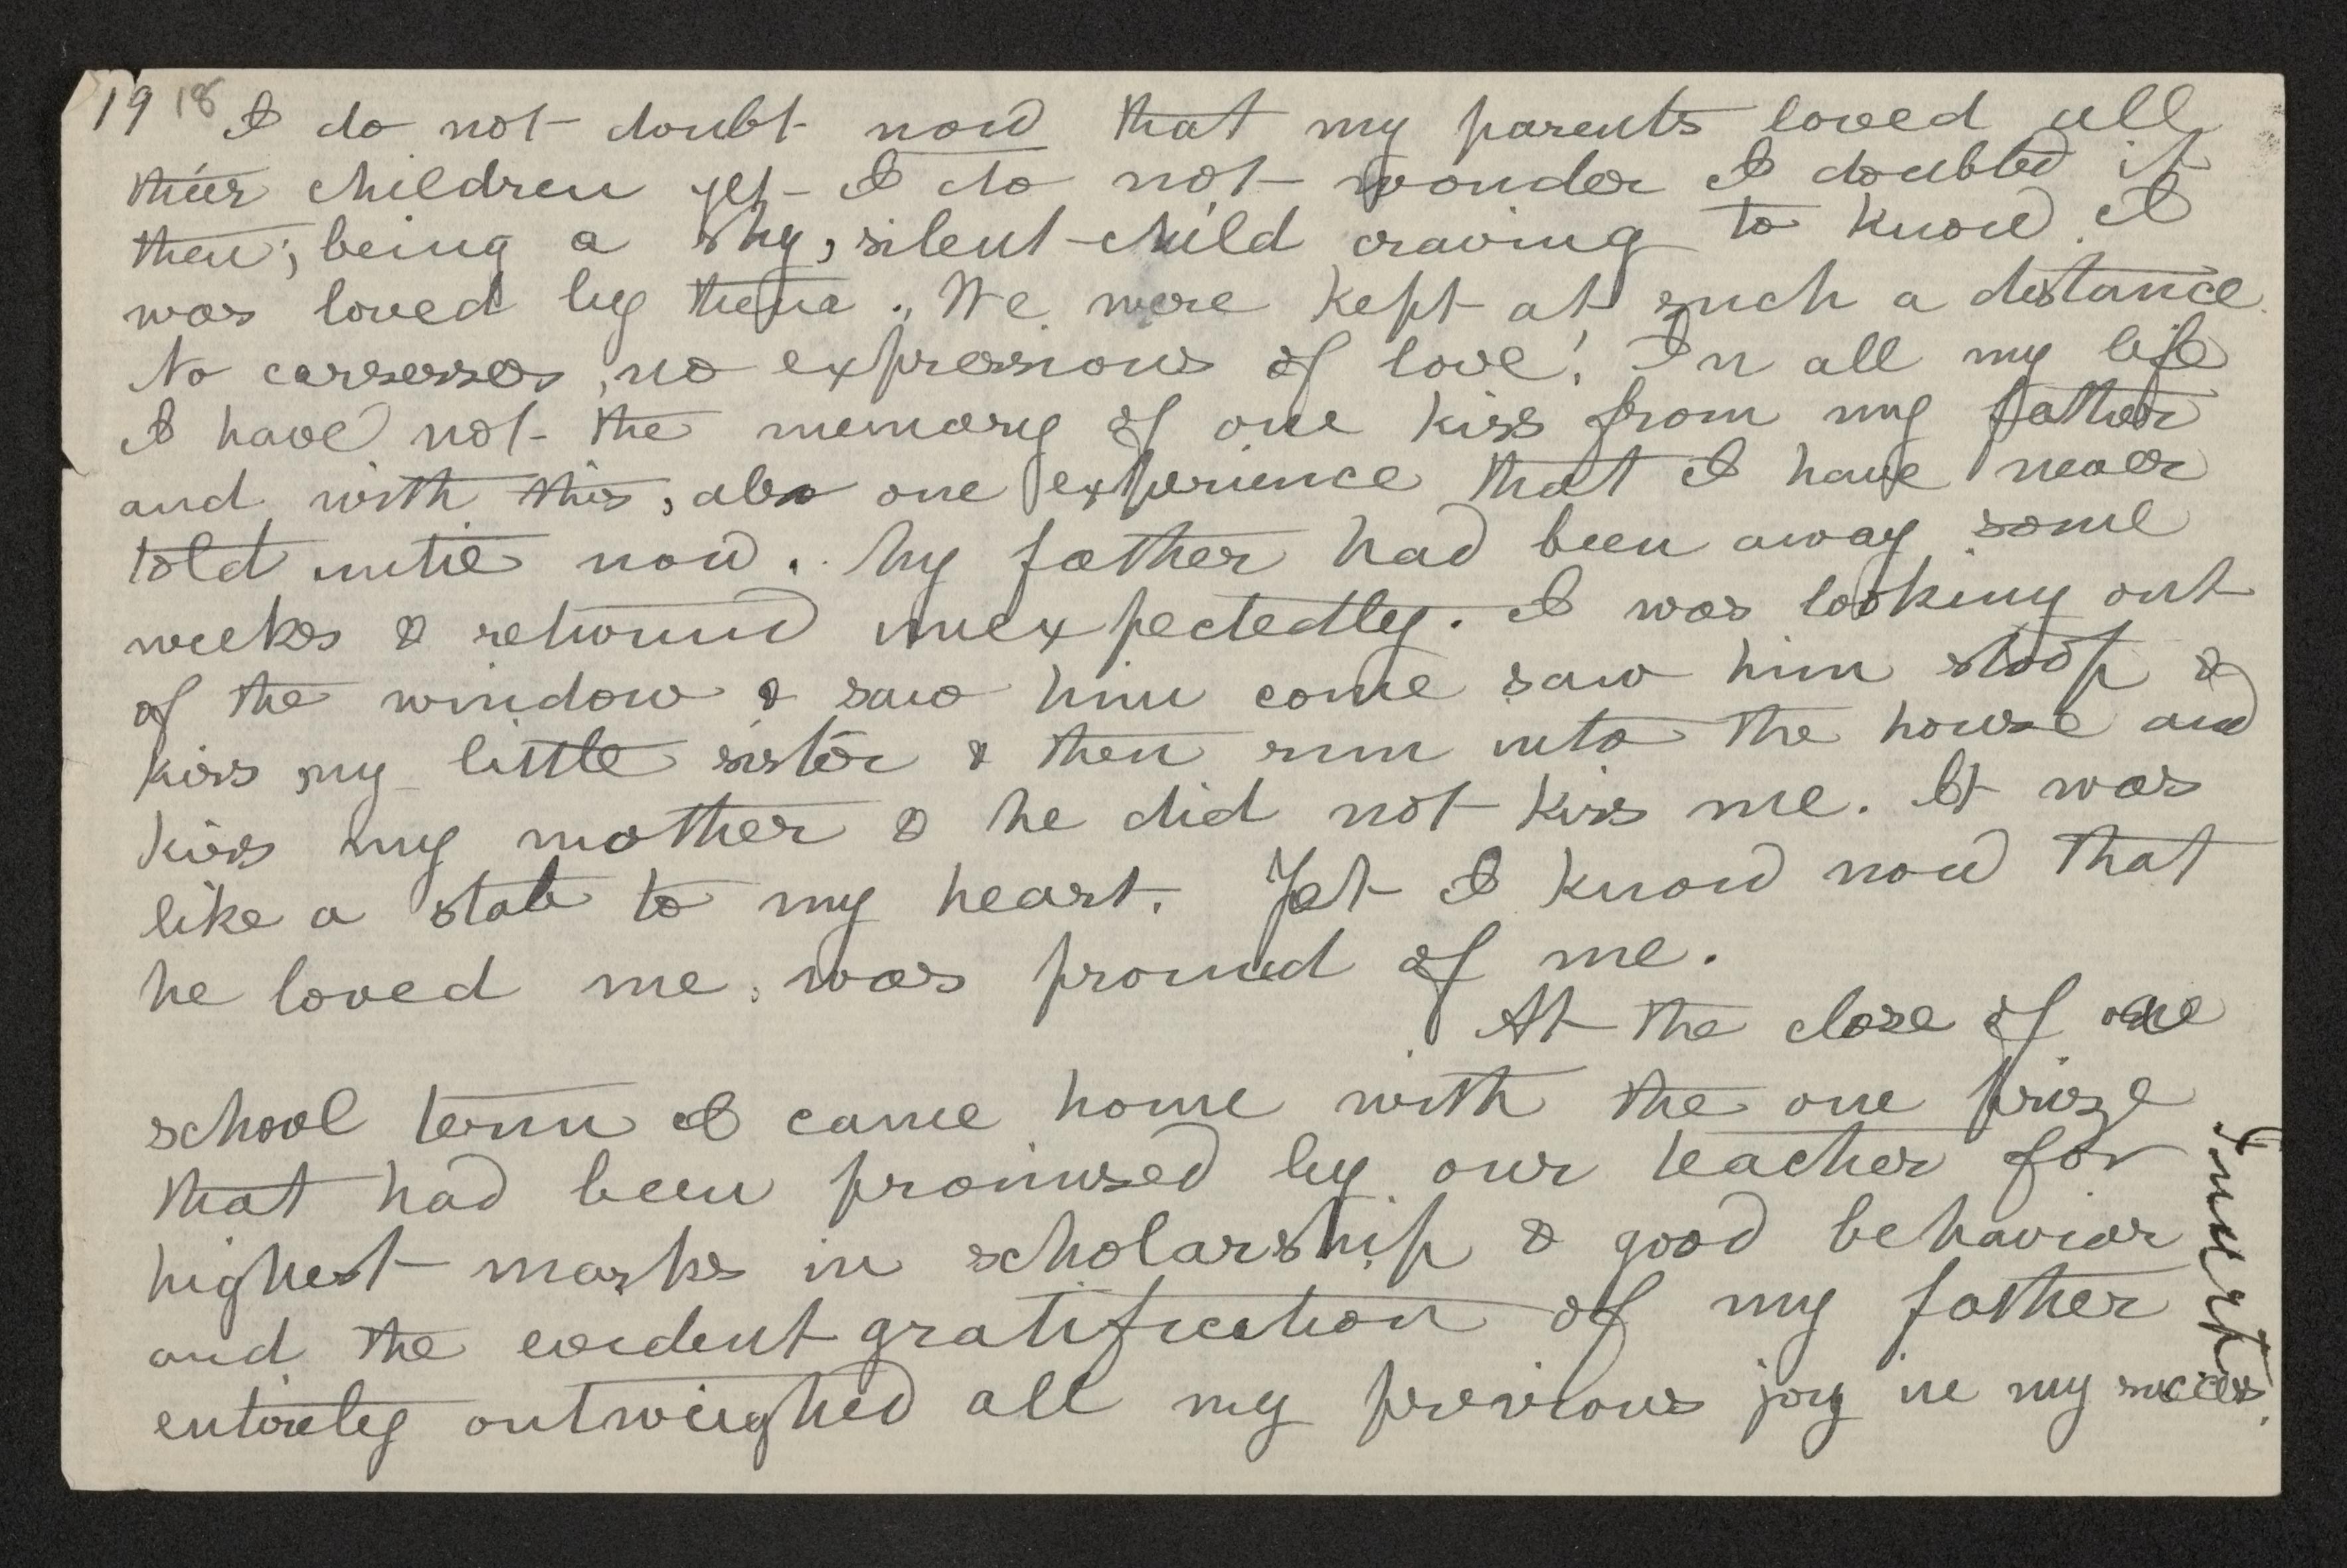 19 18 I do not doubt now that my parents loved all
their children yet I do not wonder I doubted it
then; being a shy, silent child craving to know I
was loved by them. We were kept at such a distance.
No caressses, no expressions of love! In all my life
I have not the memory of one kiss from my father
and with this, also one experience that I have never
told until now. My father had been away some
weeks & returned unexpectedly. I was looking out
of the window & saw him come saw him stoop &
kiss my little sister & then run into the house and
kiss my mother & he did not kiss me. It was
like a stab to my heart. Yet I know now that
he loved me, was proud of me.
At the close of one
school term I came home with the one prize
that had been promised by our teacher for
highest marks in scholarship & good behavior
and the evident gratification of my father
entirely outweighed all my previous joy in my success.
Insert